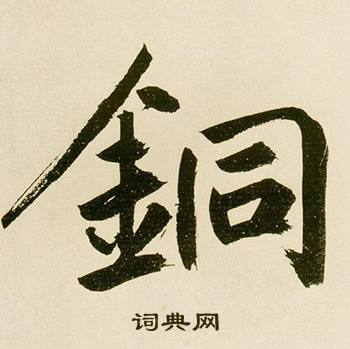 銅
词典网